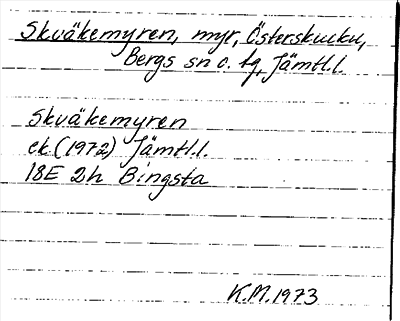 Skväkemyren, myr, Österskucku,
Bergs sn o. tg, Jämtl.l.
Skväkemyren
ek. (1972) Jämtl.l.
18E 2h Bingsta
K.M. 1973